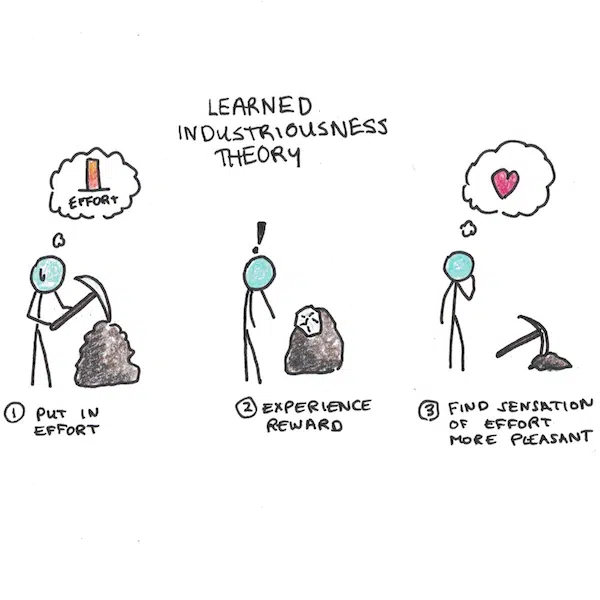 LEARNED
INDUSTRIOUSNESS
THEORY
EFFORT
!
1 PUT IN
EFFORT
2 EXPERIENCE
REWARD
3 FIND SENSATION
OF EFFORT
MORE PLEASANT